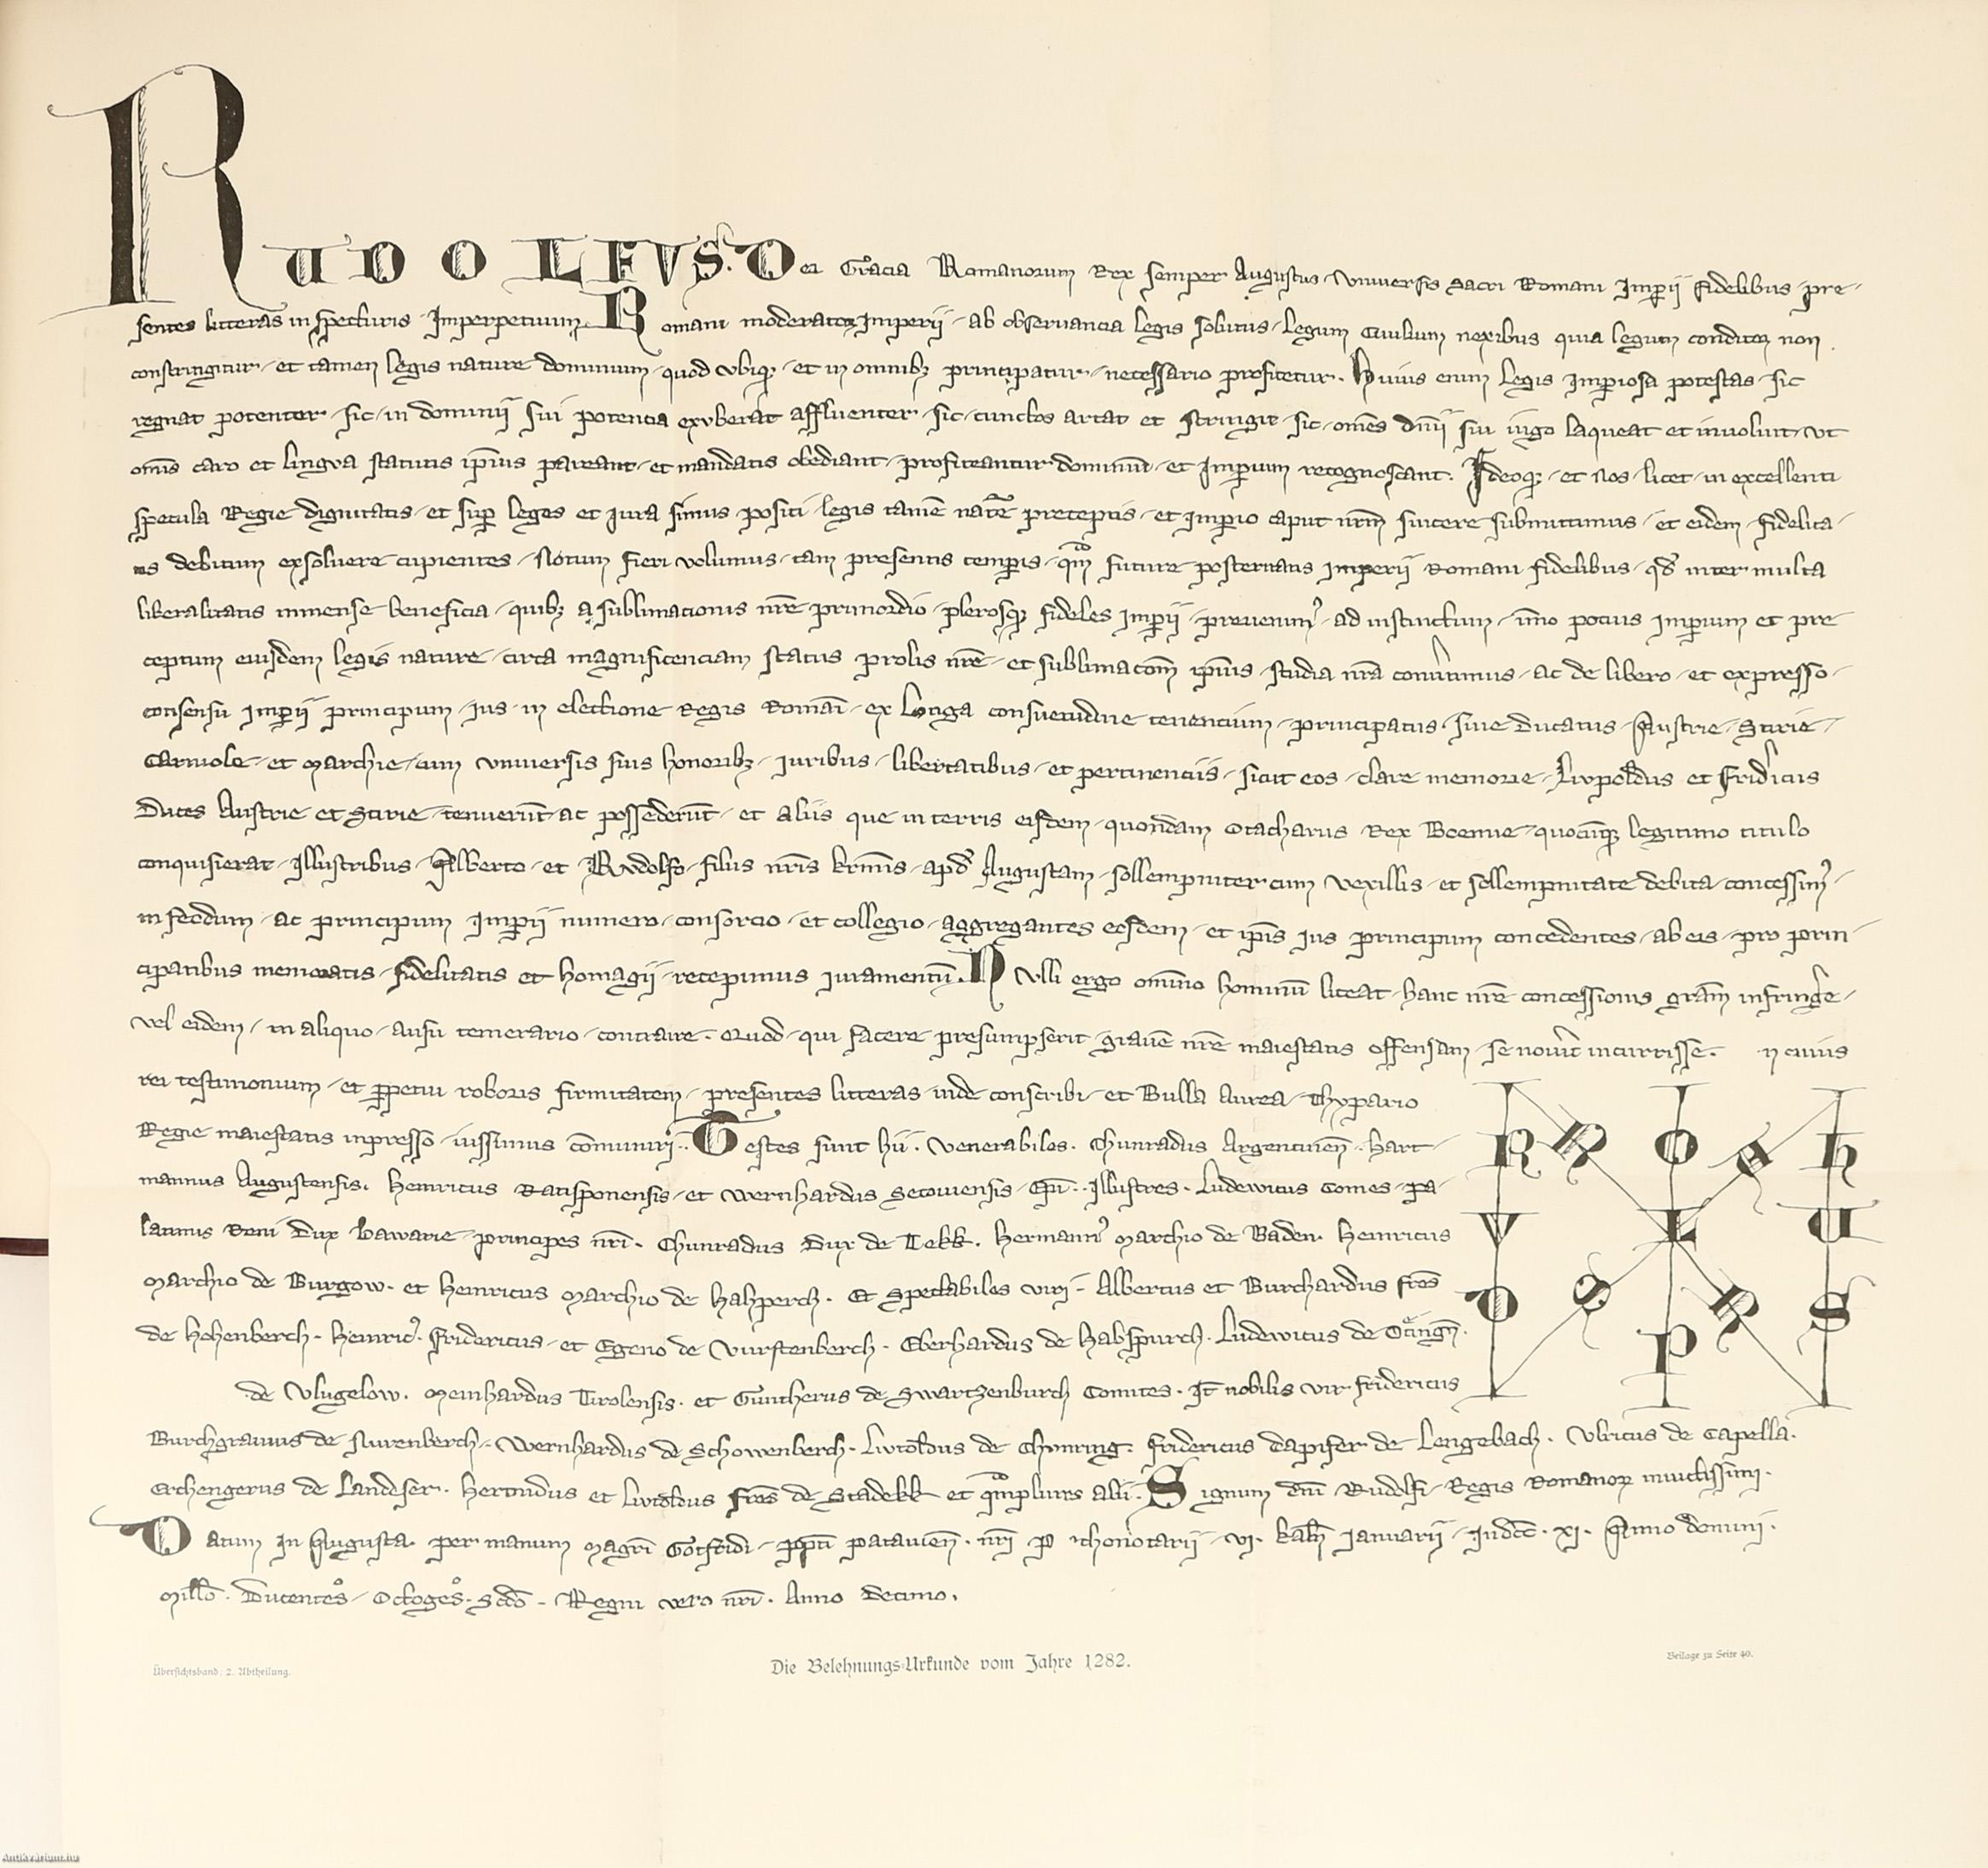 RUDOLFVS. Dei Gracia Romanorum Rex semper Augustus Universis Sacri Romani Imperii fidelibus pre-
sentes litteras inspecturis Imperpetuum. Romani moderator Imperii ab observancia legis solutus legum Civilium nexibus quia legum conditor non
constringitur et tamen legis nature dominium quod ubiq; et in omnib; principatur necessario profitetur. Huius enim legis imperiosa potestas sic
regnat potenter sic in dominii sui potencia exuberat affluenter sic cunctos artat et stringit sic om̄es dn̄ii sui iugo laqueat et involuit ut
om̄is caro et lingva statutis ip̄ius pareant et mandatis obediant profiteantur dominiū et Imperium recognoscant. Ideoq; et Nos licet in excellenti
specula Regie dignitatis et sup leges et Jura simus positi legis tamē nat̄e preceptis et Imperio caput nr̄m sincere submittimus et eidem fidelita-
tis debitum exsoluere cupientes Notum fieri volumus tam presentis temporis qm̄ future posteritatis Imperii Romani fidelibus qd̄ inter multa
liberalitatis inmense beneficia quib; a sublimacionis nr̄e primordio plerosq; fideles Imperii prevenim ad instinctum īmo pocius imperium et pre
ceptum eiusdem legis nature circa magnificenciam status prolis nr̄e et sublimacōem ip̄ius studia nr̄a convertimus ac de libero et expresso
consensu Imperii principum ius in electione Regis Romani ex Longa consuetudine tenencium principatus sive Ducatus Austrie Stirie
Carniole et Marchie cum universis suis honorib; iuribus libertatibus et pertinenciis sicut eos clare memorie Livpoldus et Fridericus
Duces Austrie et Stirie tenuerūt ac possederūt et aliis que in terris eisdem quondam Otacharus Rex Boemie quocūq; legitimo titulo
conquisierat Illustribus Alberto et Rudolfo filiis nr̄is kr̄imis apd Augustam sollempniter cum vexillis et sollempnitate debita concessim
in feodum ac principum Imperii numero consorcio et collegio aggregantes eosdem et ip̄is ius principum concedentes ab eis pro prin-
cipatibus memoratis fidelitatis et homagii recepimus iuramentū. Nulli ergo omīno hominū liceat hanc nr̄e concessionis grām infringere
vel eidem in aliquo ausu temerario contraire. Quod qui facere presumpserit gravē nr̄e maiestatis offensam se noverit incurrisse. n cuius
rei testimonium et perpetui roboris firmitatem presentes litteras inde conscribi et Bulla Aurea Thypario
Regie maiestatis inpresso iussimus cōmuniri. Testes sunt hii. Venerabiles. Chunradus Argentinen̄. Hart-
mannus Augustensis. Heinricus Ratisponensis et Wernhardus Secowensis Ep̄i. Illustres. Ludewicus Comes pa-
latinus Reni Dux Bawarie principes nr̄i. Chunradus Dux de Tekk. Hermann Marchio de Baden. Heinricus
Marchio de Burgow. et Heinricus Marchio de Hahperch. Et Spectabiles viri Albertus et Burchardus fr̄es
de Hohenberch. Heinric. Fridericus et Egeno de Vurstenberch. Eberhardus de Habspurch. Ludewicus de Otingn̄.
de Vlugelow. Meinhardus Tirolensis. et Guntherus de Swartzenburch Comites. It̄ nobilis vir Fridericus
Burchgravius de Nurenberch. Wernhardus de Schowenberch. Livtoldus de Chunring. Fridericus dapifer de Lengebach. Ulricus de Capella.
Erchengerus de Landeser. Hertnidus et Livtoldus fr̄es de Stadekk et qm̄plures alii. Signum dn̄i Rudolfi Regis Romanor̄ invictissimi.
Datum in Augusta. per manum Magr̄i Gotfridi pp̄ti pataviēn. nr̄i P thonotarii VI. kal̄n Januarii Indcc̄. XI. Anno domini.
Mill̄o. Ducentes̊ Octoges̊. Scdō. Regni vero nr̄i. Anno decimo.
R R O A H
V L U
D S R S
P
Übersichtsband: 2. Abtheilung.
Die Belehnungs-Urkunde vom Jahre 1282.
Beilage zu Seite 40.
Antikvárium.hu